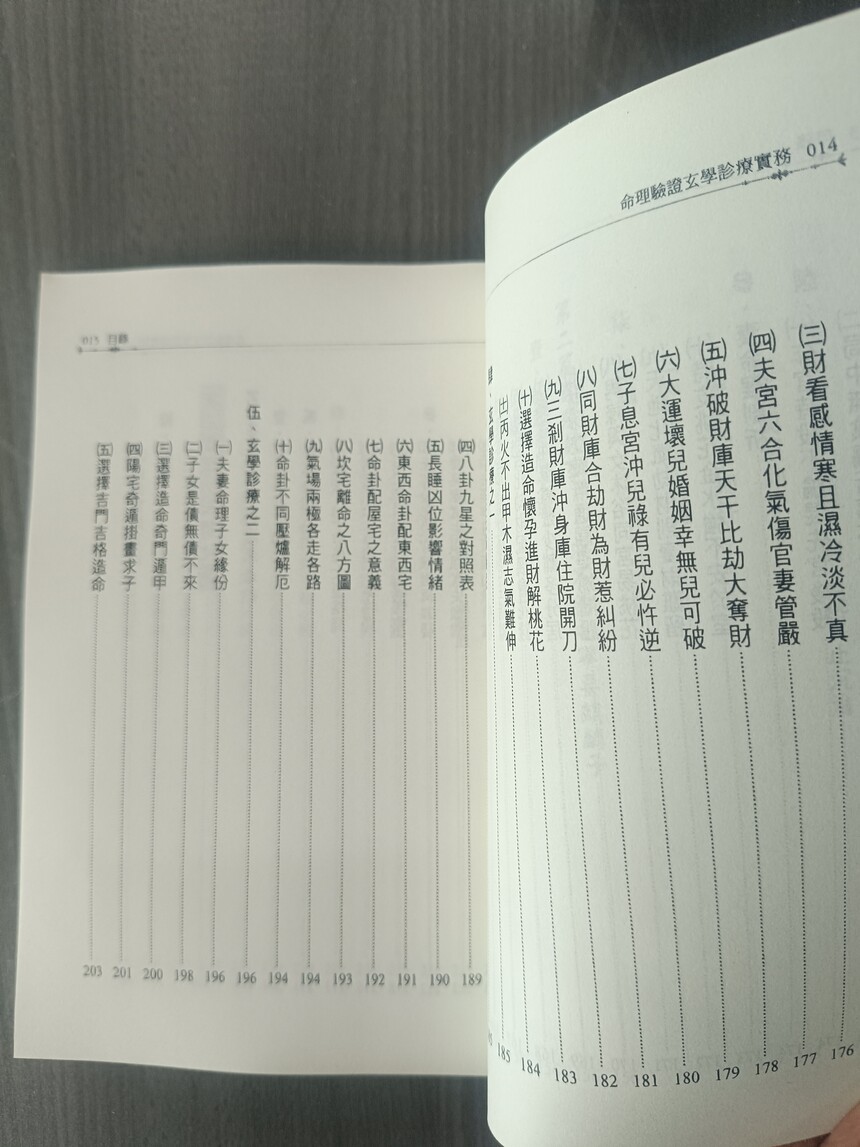 命理驗證玄學診療實務 014
㈢財看感情寒且濕冷淡不真 176
㈣夫宮六合化氣傷官妻管嚴 177
㈤沖破財庫天干比劫大奪財 178
㈥大運壞兒婚姻幸無兒可破 179
㈦子息宮沖兒祿有兒必忤逆 180
㈧同財庫合劫財為財惹糾紛 181
㈨三剎財庫沖身庫住院開刀 182
㈩選擇造命懷孕進財解桃花 183
(十一)丙火不出甲木濕志氣難伸 184
玄學診療之一 185
015 目錄
㈣八卦九星之對照表 189
㈤長睡凶位影響情緒 190
㈥東西命卦配東西宅 191
㈦命卦配屋宅之意義 192
㈧坎宅離命之八方圖 193
㈨氣場兩極各走各路 194
㈩命卦不同壓爐解厄 194
伍、玄學診療之二 196
㈠夫妻命理子女緣份 196
㈡子女是債無債不來 198
㈢選擇造命奇門遁甲 200
㈣陽宅奇遁掛畫求子 201
㈤選擇吉門吉格造命 203